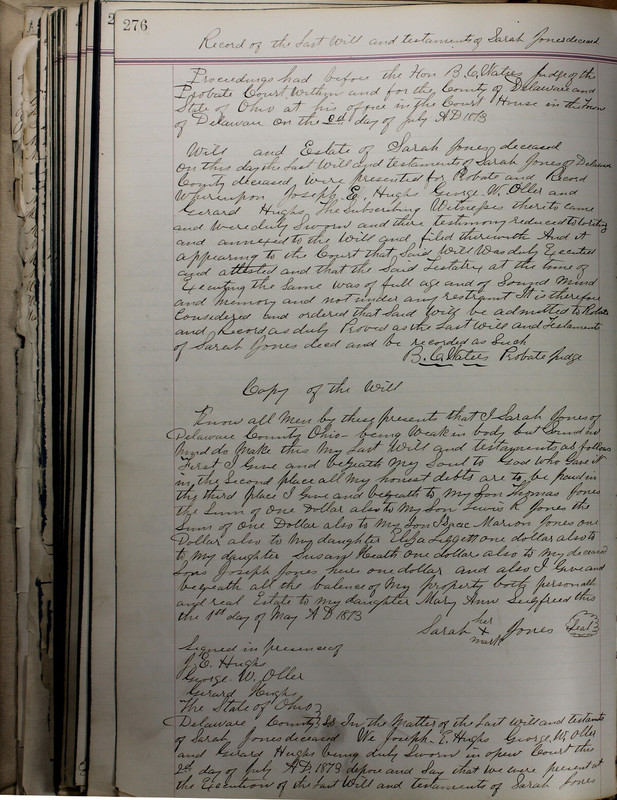 276
Record of the Last Will and testament of Sarah Jones deceased
Proceedings had before the Hon B. C. Waters Judge of the
Probate Court Within and for the County of Delaware and
State of Ohio at his office in the Court House in the Town
of Delaware on the 2d day of July A D 1873
Will and Estate of Sarah Jones deceased
on this day the Last Will and testament of Sarah Jones of Delaware
County deceased were presented for Probate and Record
Whereupon Joseph E. Hughs George W. Oller and
Gerard Hughs The Subscribing Witnesses thereto came
and were duly Sworn and there testimony reduced to writing
and annexed to the Will and filed therewith And it
appearing to the Court that Said Will Was duly Executed
and attested and that the Said Testatrix at the time of
Executing the Same was of full age and of Sound Mind
and Memory and not under any restraint It is therefore
Considered and ordered that Said Will be admitted to Probate
and Record as duly Proved as the Last Will and Testament
of Sarah Jones decd and be recorded as Such
B. C. Waters Probate Judge
Copy of the Will
Know all Men by these presents that I Sarah Jones of
Delaware County Ohio - being Weak in body but Sound in
Mind do Make this My Last Will and testament as follows
First I Give and beqeath My Soul to God Who Gave it
in the Second place all My honest debts are to be paid in
the third place I Give and beqeath to My Son Thomas Jones
the Sum of One Dollar also to My Son Lewis K Jones the
Sum of One Dollar also to My Son Isaac Marion Jones one
Dollar also to My daughter Eliza Liggett one dollar also to
to My daughter Susan Heath one dollar also to My deceased
Sons Joseph Jones heirs one dollar and also I Give and
beqeath all the balance of My property both personal
and real Estate to my daughter Mary Ann Seigfreed this
the 1st day of May A D 1873
Sarah her X mark Jones Seal
Signed in presence of
J. E. Hughs
George W. Oller
Gerard Hughs
The State of Ohio
Delaware County SS In the Matter of the Last Will and testament
of Sarah Jones deceased We Joseph E. Hughs George W. Oller
and Gerard Hughs being duly Sworn in open Court this
2d day of July A D 1873 depose and Say that We were present at
the Execution of the Last Will and testament of Sarah Jones